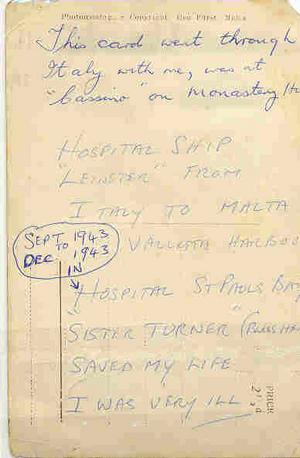 Photomontage, Copyright Geo Fürst Malta
This card went through
Italy with me, was at
"Cassino" on Monastery
HOSPITAL SHIP
"LEINSTER" FROM
ITALY TO MALTA
SEPT 1943
TO
DEC 1943
IN
VALLETTA HARBOU
HOSPITAL ST PAULS BAY
"SISTER TURNER"
SAVED MY LIFE
I WAS VERY ILL
PRICE
2½d